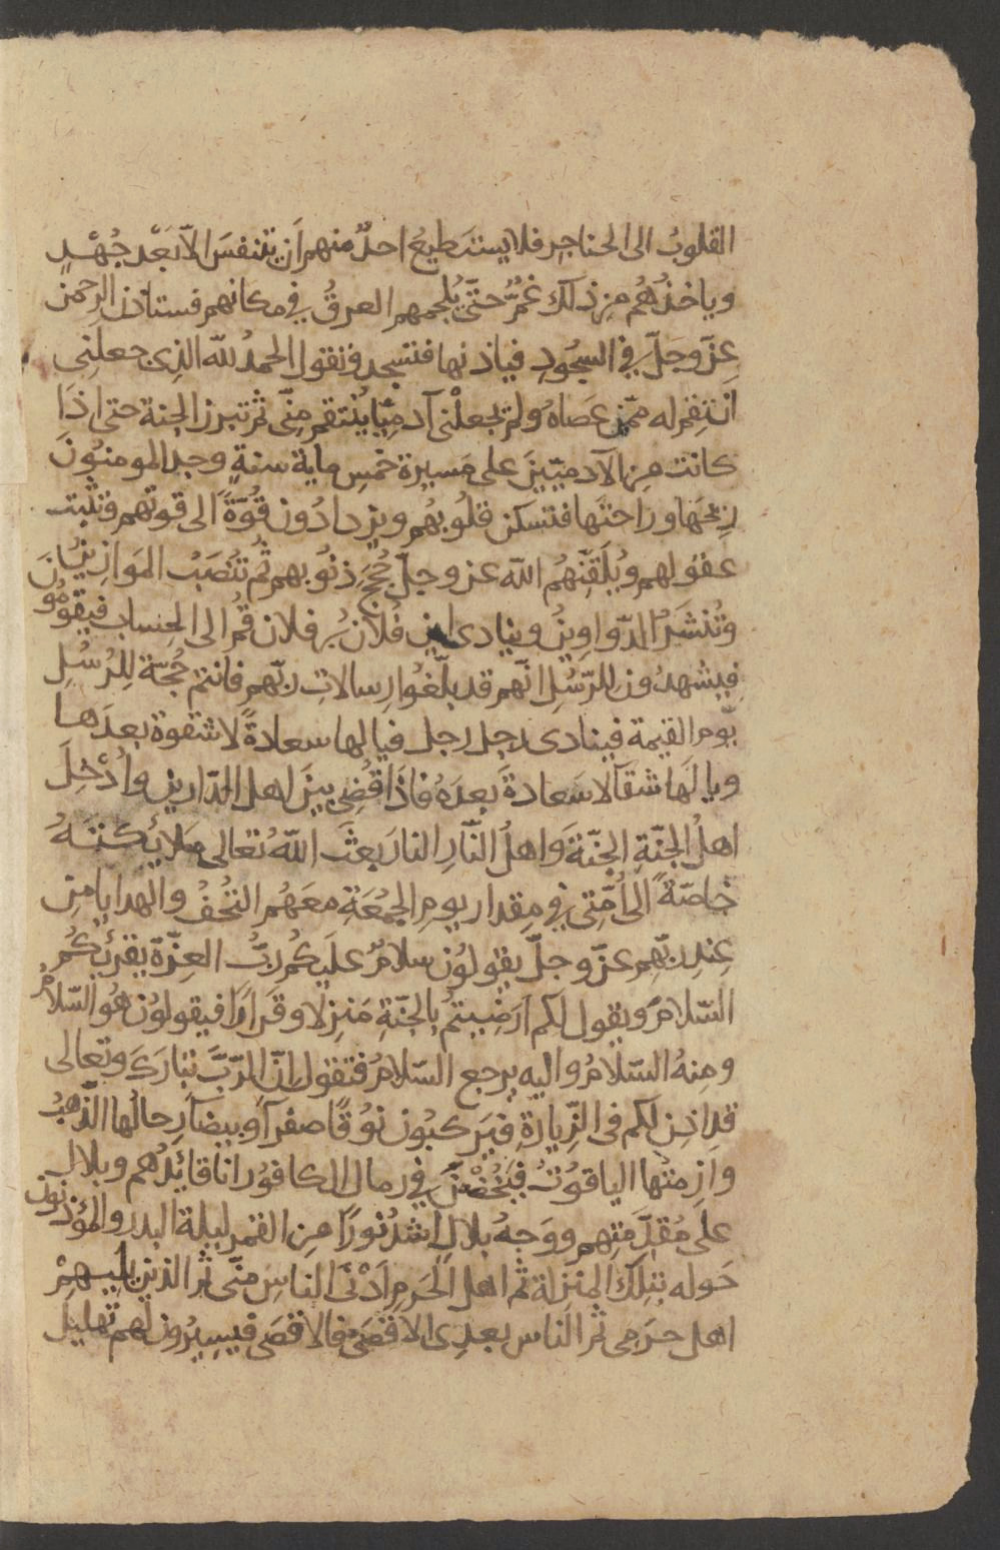 القلوبُ الى الحناجِرِ فلا يستطيعُ احدٌ منهم اَن يتنفسَ الاّ بَعْد جُهْدٍ
وياخذُهُم مِن ذلك غمٌّ حتّى يُلجمهم العرقُ في مكانهم فستاذن الرحمن
عزّ وجلّ في السجُودِ فياذنها فتسجد وتقول الحمدُ للّه الذِى جعلنِى
انتقم له ممّن عصَاهُ ولم تجعلْنى آدميّا يُنتقم منِّى ثم تبرز الجنة حتى اذَا
كانت مِن الآدميّينَ على مَسيرة خمسِ ماية سنةٍ وجد المومنُونَ
ريحَها وراحتَها فتسكن قلُوبهُم ويزدادُون قُوّةً الى قوتهم فتثبت
عقولهم ويُلَقِّنُهُم اللّه عز وجلّ حُججَ ذنُوبهم ثم تُنصَبُ المَوازِينُ
وتُنشَرُ الدّواوِينُ وينادى اين فُلان بن فلان قُم الى الحِساب فيقومُونَ
فيشهدُون للرّسُلِ انّهم قد بلّغُوا رِسالاتِ ربّهم فانتم حُجّة للِرُسُلِ
يوم القيمة فينادى رجل رجل فيا لها سعادةً لا شقوة بعدَها
ويا لَها شقآ لا سَعادةَ بَعدَهُ فاذَا قُضِى بينَ اهل الدّارين واُدْخِلَ
اهلُ الجنّةِ الجنّةَ واهلُ النّارِ النارَ بعثَ اللّهُ تعالى ملائكتَهُ
خاصّةً الى اُمّتِى في مقدار يومِ الجمُعَةِ معَهُم التُحُفُ والهدايا مِن
عِندِ ربّهم عزّ وجلّ يقولُون سلامٌ علَيكُم ربُّ العِزّة يقرئكُم
السّلامَ ويقول لكم اَرَضِيتُم بالجنّةِ مَنزِلا وقَرَارًا فيقولوُن هُو السّلامُ
ومنهُ السّلامُ واليه يرجع السّلامُ فتقول انّ الرّبّ تبارَكَ وتعالى
قد اذِن لكم فى الزّيارةِ فيَركبُون نُوقًا صفرآ وبيضآ رِحالُها الذّهبُ
وازمتُها الياقوُتُ في رمال الكافوُر انا قائِدُهم وبلال
على مُقدّمَتِهم ووَجهُ بلالٍ اشدّ نُورًا مِن القمر ليلة البدر والمؤذنون
حَوله بتِلك المنزلة ثم اهل الحَرمِ اَدْنَى الناسِ منّى ثم الذين يليهِمْ
اهل حرَمى ثم الناس بعدِى الاقصَى فالاقصَى فيسيرُون لَهم تهليل